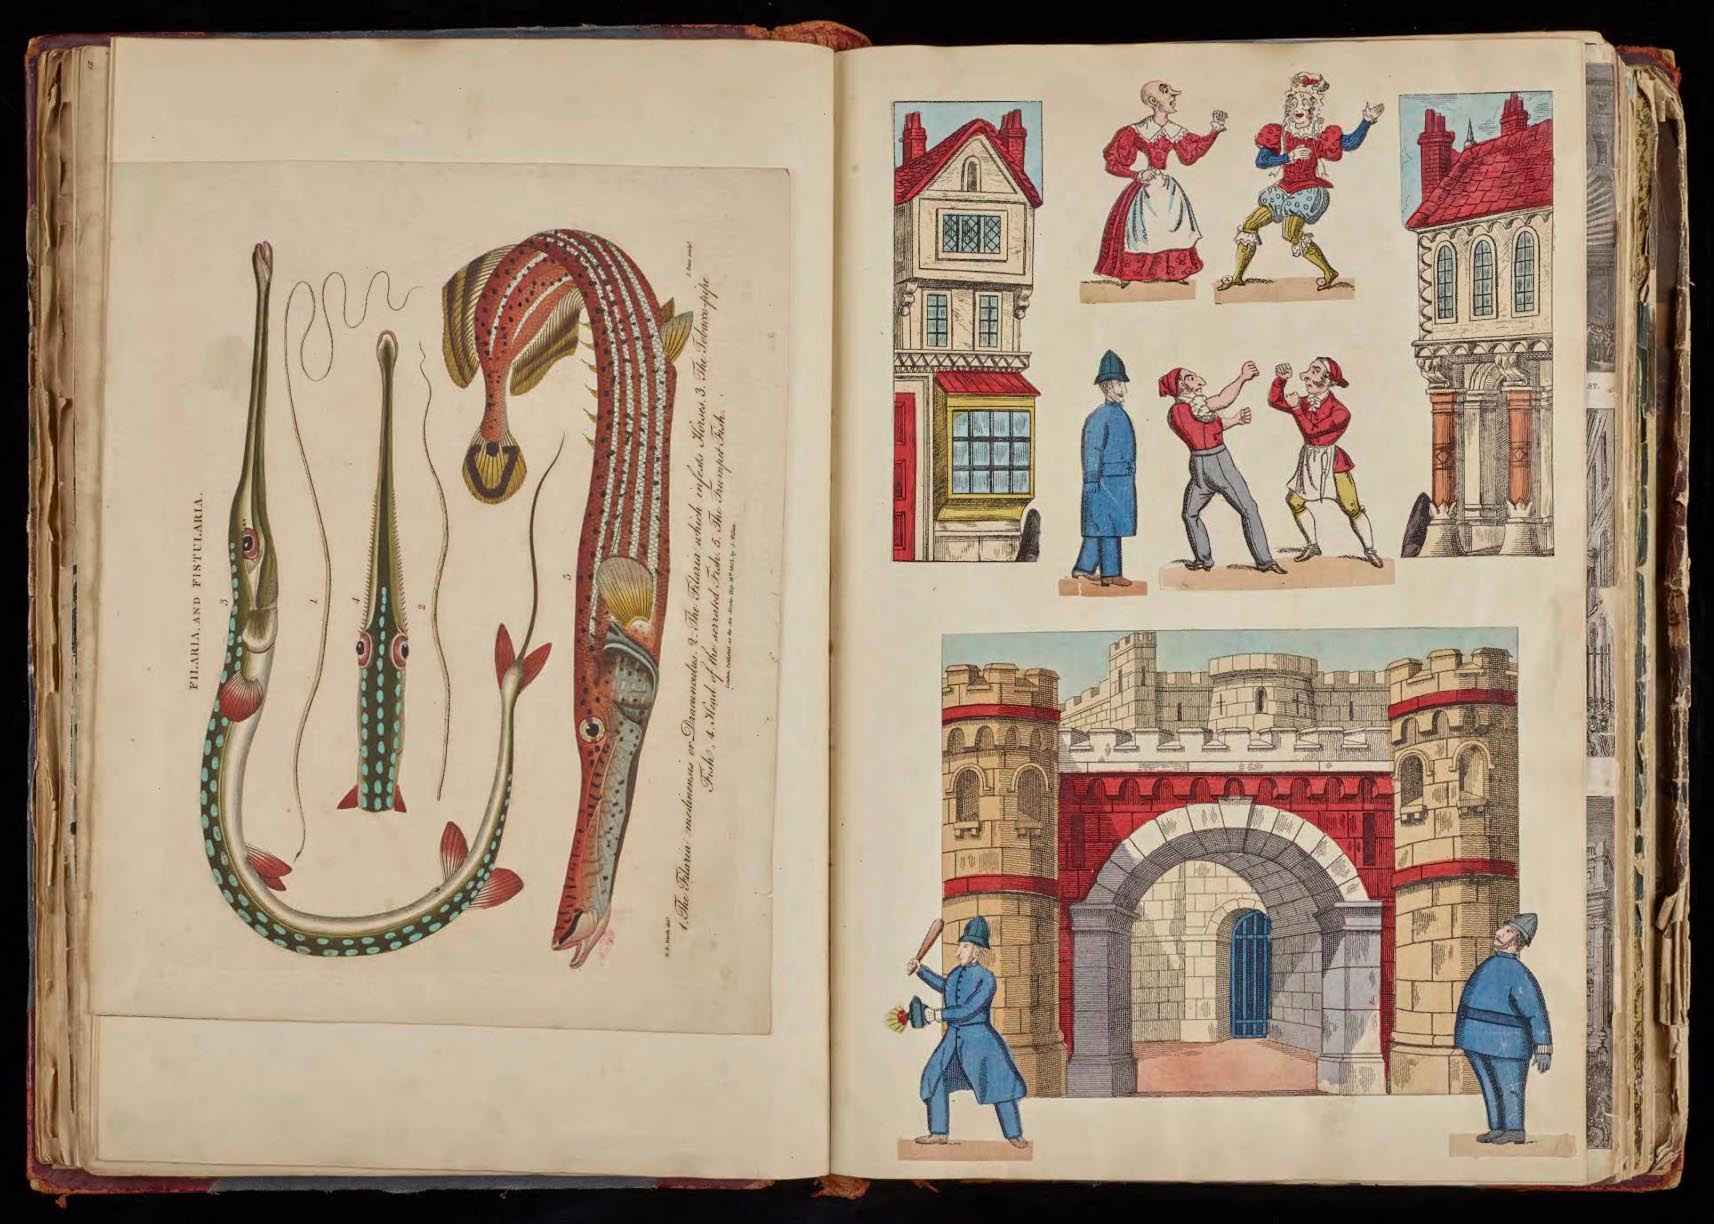 FILARIA, AND FISTULARIA.
3
1
4
2
5
1. The Filaria medinensis or Dracunculus. 2. The Filaria which infests Horses. 3. The Tobacco-pipe
Fish. 4. Head of the serrated Fish. 5. The Trumpet Fish.